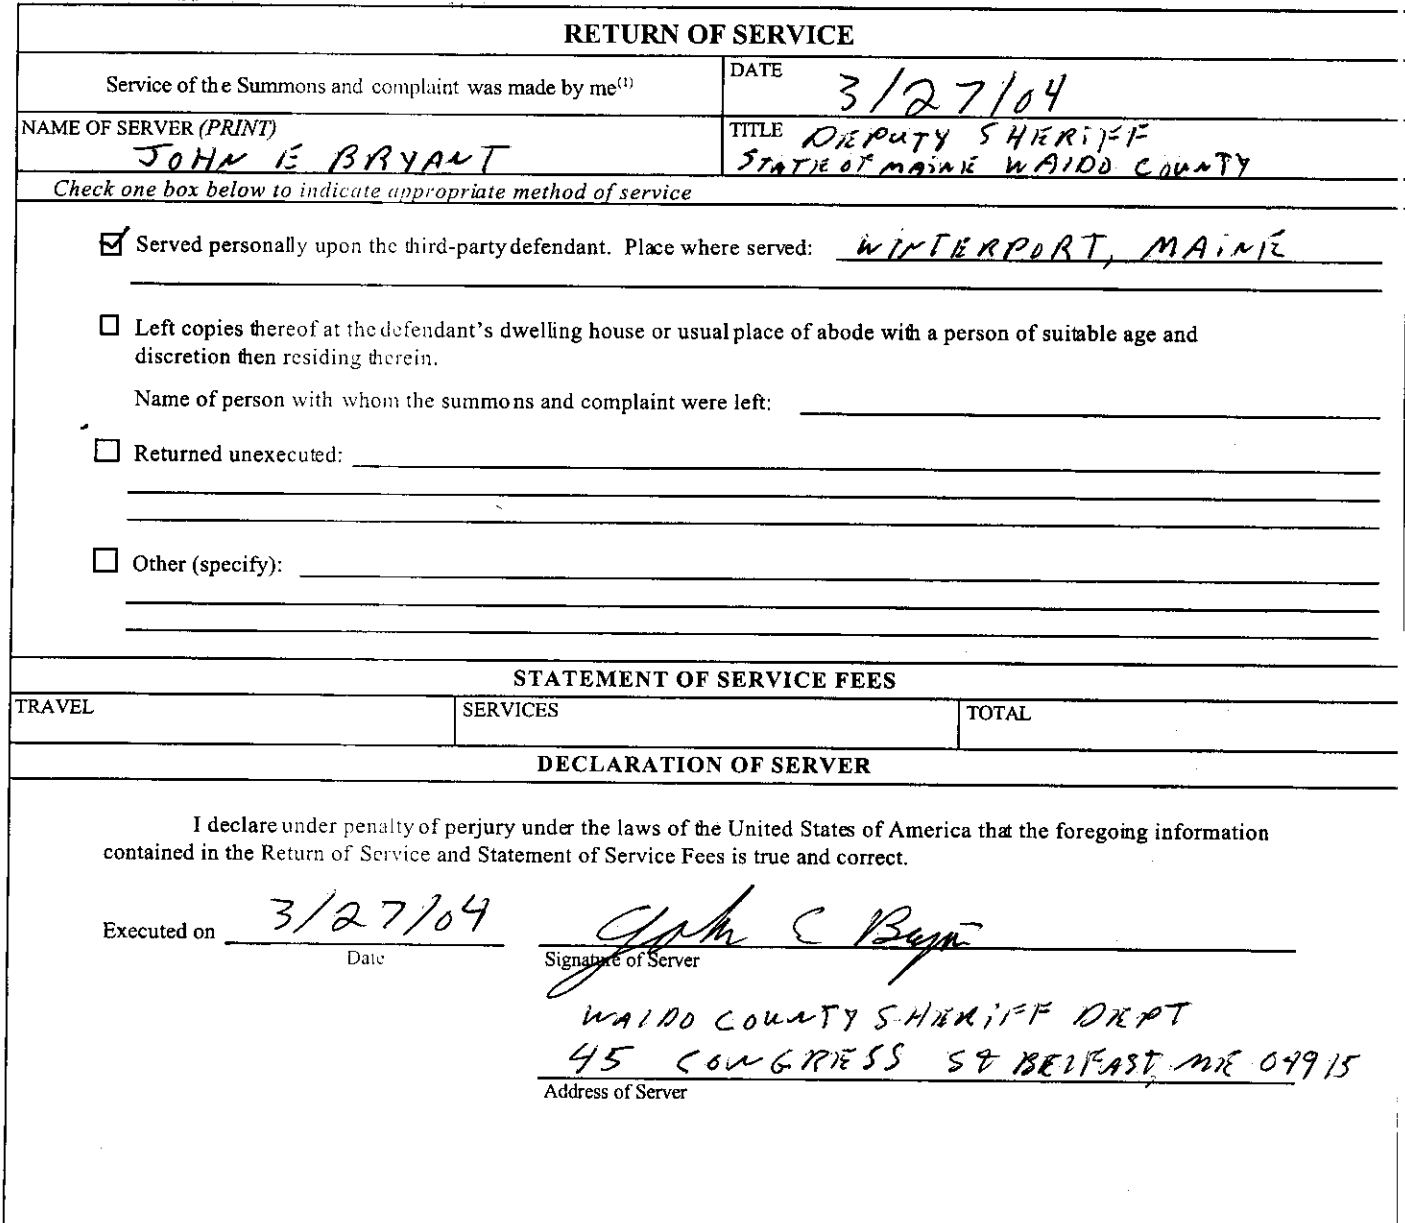 RETURN OF SERVICE
Service of the Summons and complaint was made by me(1)
DATE 3/27/04
NAME OF SERVER (PRINT)
JOHN E BRYANT
TITLE DEPUTY SHERIFF
STATE OF MAINE WALDO COUNTY
Check one box below to indicate appropriate method of service
Served personally upon the third-party defendant. Place where served: WINTERPORT, MAINE
Left copies thereof at the defendant's dwelling house or usual place of abode with a person of suitable age and
discretion then residing therein.
Name of person with whom the summons and complaint were left:
Returned unexecuted:
Other (specify):
STATEMENT OF SERVICE FEES
TRAVEL SERVICES TOTAL
DECLARATION OF SERVER
I declare under penalty of perjury under the laws of the United States of America that the foregoing information
contained in the Return of Service and Statement of Service Fees is true and correct.
Executed on 3/27/04 John E Bryant
Date Signature of Server
WALDO COUNTY SHERIFF DEPT
45 CONGRESS St BELFAST, ME 04915
Address of Server